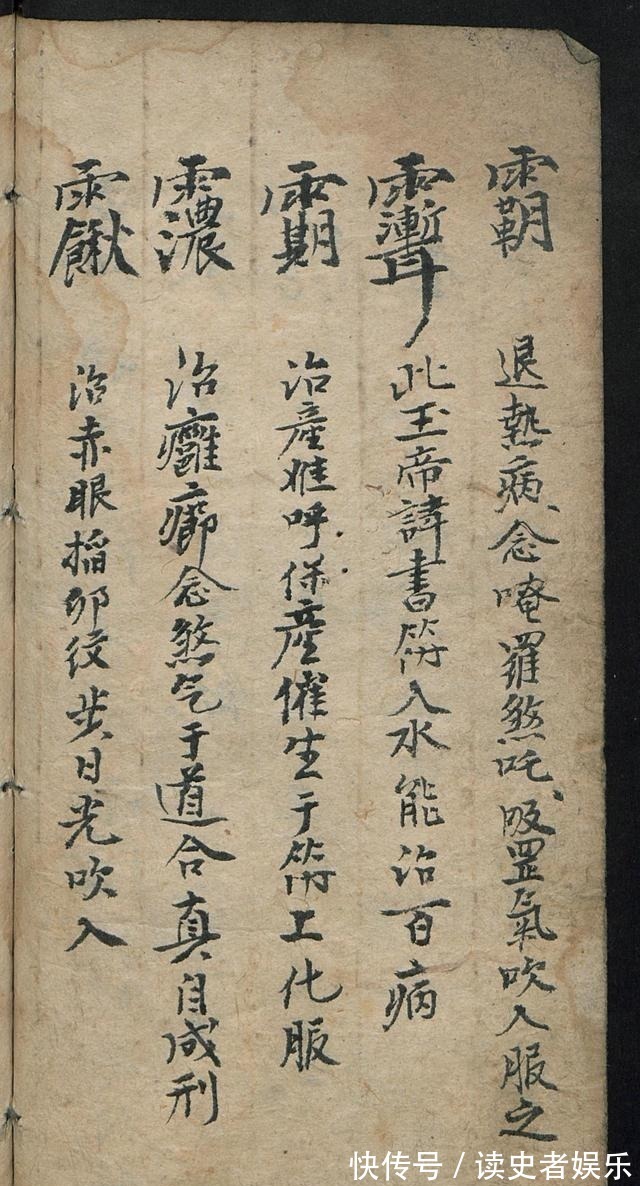 霸 退熱病念唵羅煞吒吸罡氣吹入服之
此玉帝諱書符入水能治百病
治產呼保產催生于符上化服
治癰癤念煞气于道合真自成刑
治赤眼掐卯紋步日光吹入
快传号/读史者娱乐